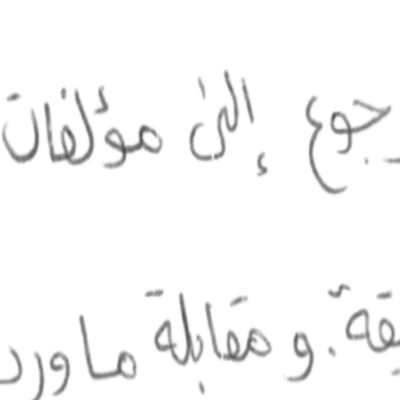 جوع إلى مؤلفات
يقة. و مقابلة ما ورد